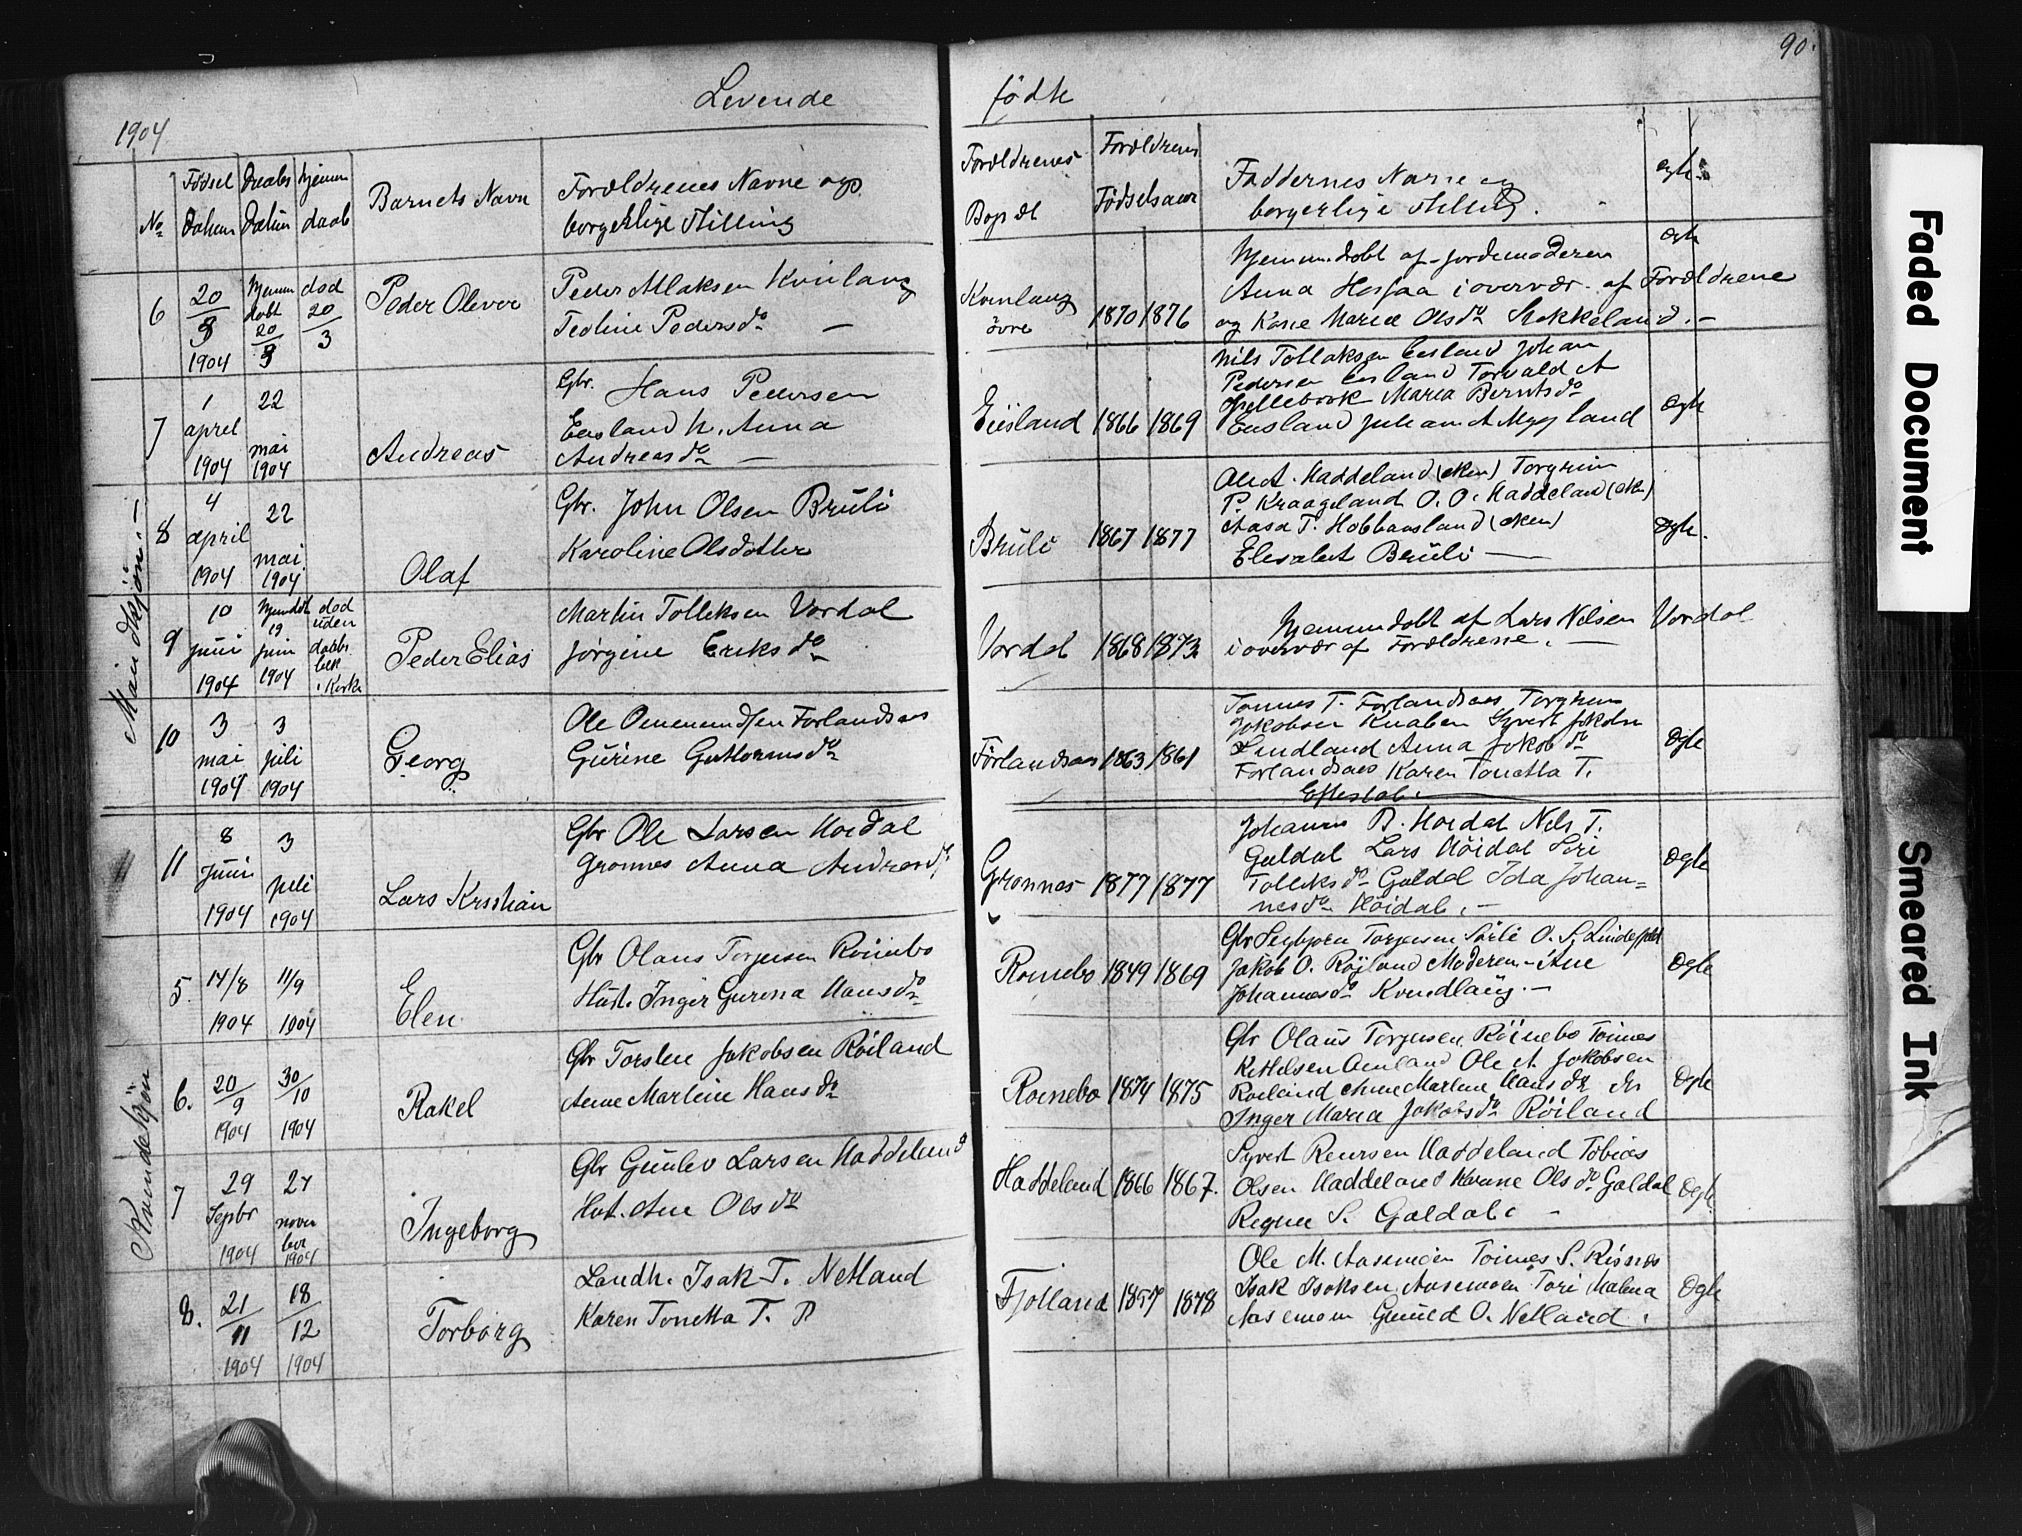 90.
Levende fødte
1904
No
Fødsel Datum
Daabs Datum
hjemme daab
Barnets Navn
Forældrenes Navne og
borgerlige Stilling
Forældrenes Bopæl
Forældrenes Fødselsaar
Faddernes Navne og
borgerlige Stilling.
ægte
Mandkjön.
6
20/3 1904
hjemmedøbt 20/3
død 20/3
Peder Olever
Peder Aslaksen Kvinlaug
Teoline Pedersdr —
Kvinlaug øvre
1870 1876
Hjemmedøbt af Jordemoderen
Anna Hosfaa i overvær. af Forældrene
og Kasse Maria Olsdr Stokkeland. —
Ægte
7
1 april 1904
22 mai 1904
Andreas
Gbr. Hans Pedersen
Eesland h. Anna
Andreasdr —
Eiesland
1866 1869
Nils Tollaksen Eesland Johan
Pedersen Eesland Torvald A
Spellebrok Maria Berntsdr
Eesland Julia A Mygland
Ægte
8
4 april 1904
22 mai 1904
Olaf
Gbr. John Olsen Brüli
Karoline Olsdotter
Brüli
1867 1877
Ole A. Haddeland (eken) Torgrim
P. Kraageland O. O. Haddeland (eken)
Aasa T. Hobbaasland (eken)
Elesabet Brüli —
Ægte.
9
10 juni 1904
hjemdøbt 19 juni 1904
død uden daabs bek i Kirke
Peder Elias
Martin Tolleksen Vordal
Jørgine Eriksdr
Vordal
1868 1873
Hjemmedøbt af Lars Nilsen Vordal
i overvær af Forældrene. —
10
3 mai 1904
3 juli 1904
Georg
Ole Omemundsen Forlandsaas
Gürine Guttormsdr
Førlandsaas
1863 1861
Tønnes T. Forlandsaas Torgrim
Jokobsen Knaben Syvert Jokobsen
Lindland Anna Jokobdr
Forlandsaas Karen Tonetta T.
Eftestøl.
Ægte
11
8 Juni 1904
3 juli 1904
Lars Kristian
Gbr Ole Larsen Hoidal
Gronnes Anna Andreasdr
Gronnes
1877 1877
Johannes B. Hoidal Nels T.
Galdal Lars Høidal Siri
Tolleksdr Galdal Ida Johan=
nesdr Høidal. —
Ægte
Kvindekjön
5.
14/8 1904
11/9 1904
Elen
Gbr Olaus Torjusen Roinebo
Hust. Inger Gurina Hansdr
Roinebo
1849 1869
Gbr Seybjorn Torjusen Sørli O. S. Lindefjeld
Jakob O. Røyland Moderen — Ane
Johannesdr Kvindlaug. —
Ægte
6.
20/9 1904
30/10 1904
Rakel
Gbr Torsten Jokobsen Røiland
Anne Martine Hansdr
Roinebo
1874 1875
Gbr Olaus Torgusen Røinebo Toines
Kittelsen Omland Ole A. Jokobsen
Roiland Anne Martine Hansdr ds
Inger Maria Jokobsdr Røiland
Ægte
7
29 Septbr 1904
27 november 1904
Ingeborg
Gbr Gunlev Larsen Haddeland
Hut. Ane Olsdr
Haddeland
1866 1867.
Syvert Reiersen Haddeland Tobias
Olsen Haddeland Karane Olsdr Galdal
Regine S. Galdal. —
Ægte
8.
21/11 1904
18/12 1904
Torborg
Landh. Isak T. Netland
Karen Tonetta T. P
Fjotland
1857 1878
Ole M. Aasemoen Toines S. Risnes
Isak Isaksen Aasemoen Tori Malena
Aasemoen Gunild O. Netland.
Ægte
Faded Document
Smeared Ink